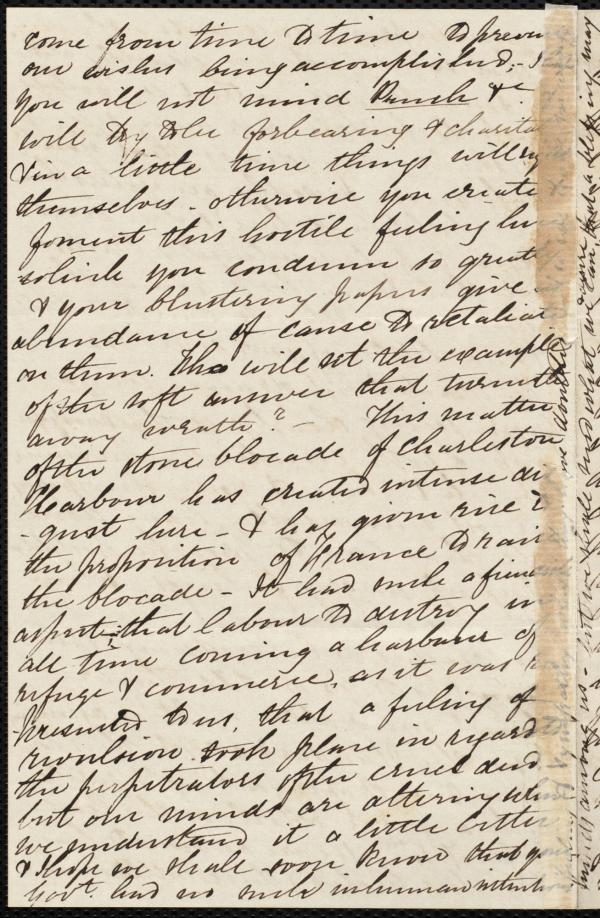 come from time to time to preven
our wishes being accomplished, - I
you will not mind Punch & c
will try to be forbearing & charita
& in a little time things will
themselves - otherwise you create
foment this hostile feeling
which you condemn so great
& your blustering papers give
abundance of cause to retaliat
on them. Who will set the example
of the soft answer that turneth
away wrath? - This matter
of the stone blocade of Charleston
Harbour has created intense dis
- gust here - & has given rise to
the proposition of France to rai
the blocade - It had such a fien
aspect; that labour to destroy in
all time coming a harbour of
refuge & commerce, as it was
presented to us, that a feeling of
revulsion took place in regard
the perpetrators of the cruel deed
but our minds are altering when
we understand it a little better
& I hope we shall soon know that
Govt. had no such inhuman intent